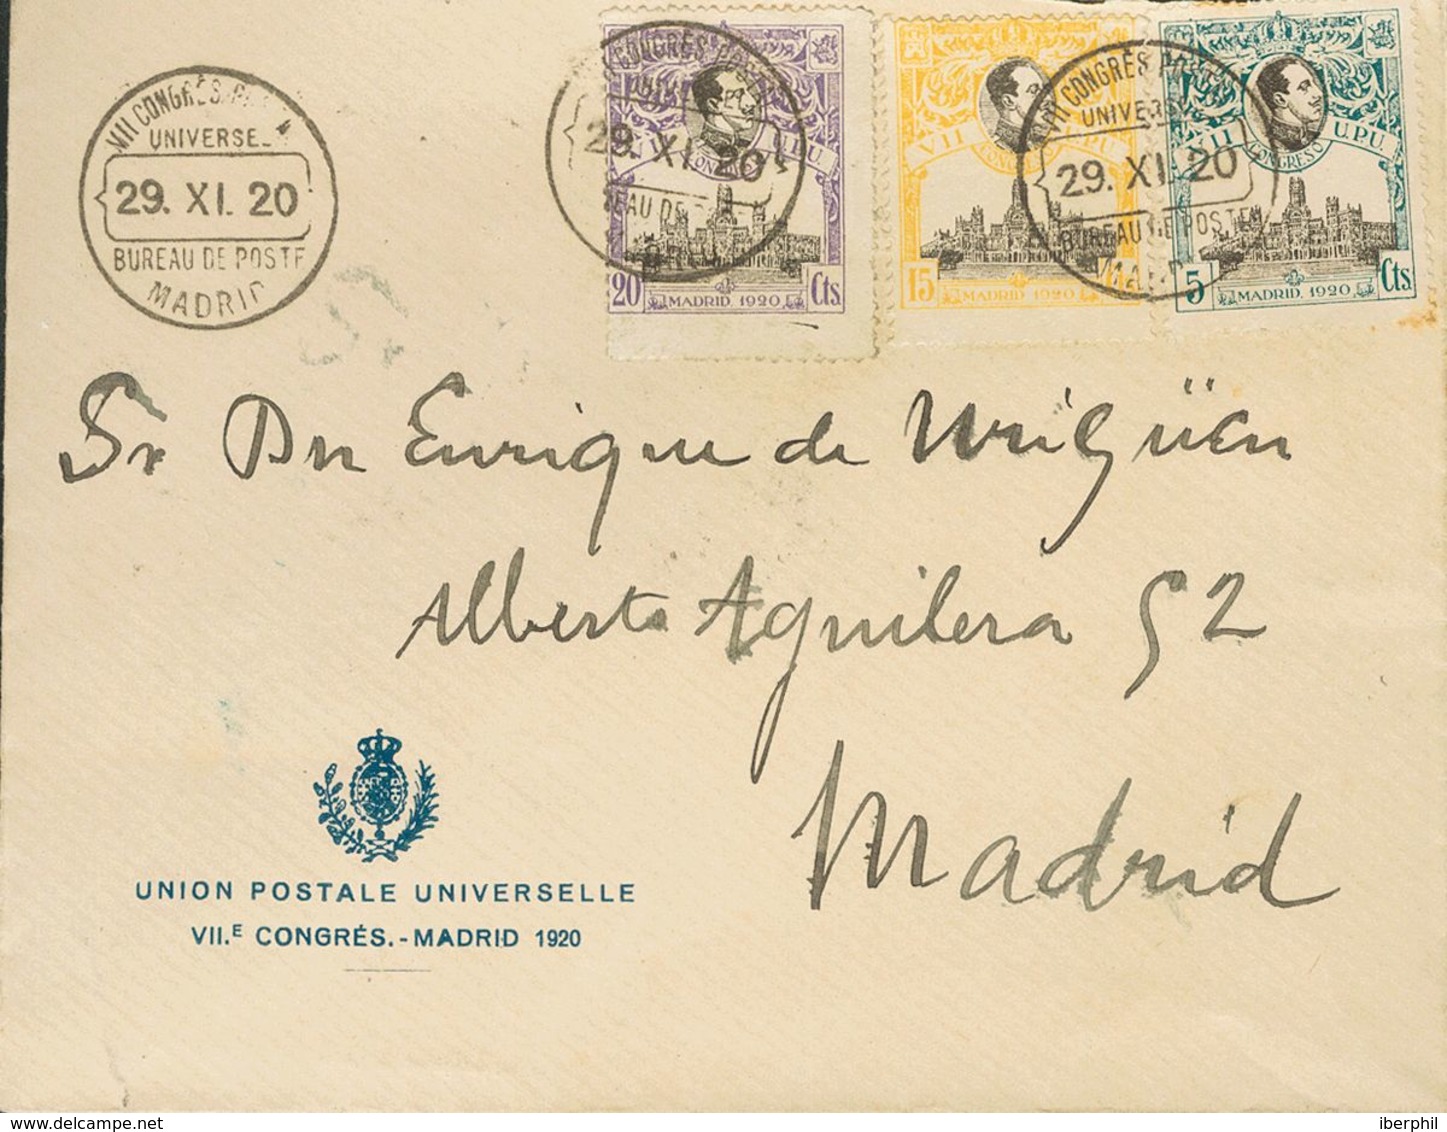 VII CONGRÈS
UNIVERSE
29. XI. 20
BUREAU DE POSTE
MADRID
CONGRÈS POSTA
29. XI. 20
EAU DE
VII U.P.U.
CONGRESO
20 Cts.
MADRID. 1920
VII UPU
CONGRESO
15
MADRID 1920
VII CONGRÈS POST
UNIVERS
29. XI. 20
BUREAU DE POSTE
MADRID
VII U.P.U.
CONGRESO
5 Cts.
MADRID. 1920
Sr Dn Enrique de Urigüen
Alberto Aguilera 52
Madrid
UNION POSTALE UNIVERSELLE
VII.E CONGRÉS.-MADRID 1920
iberphil